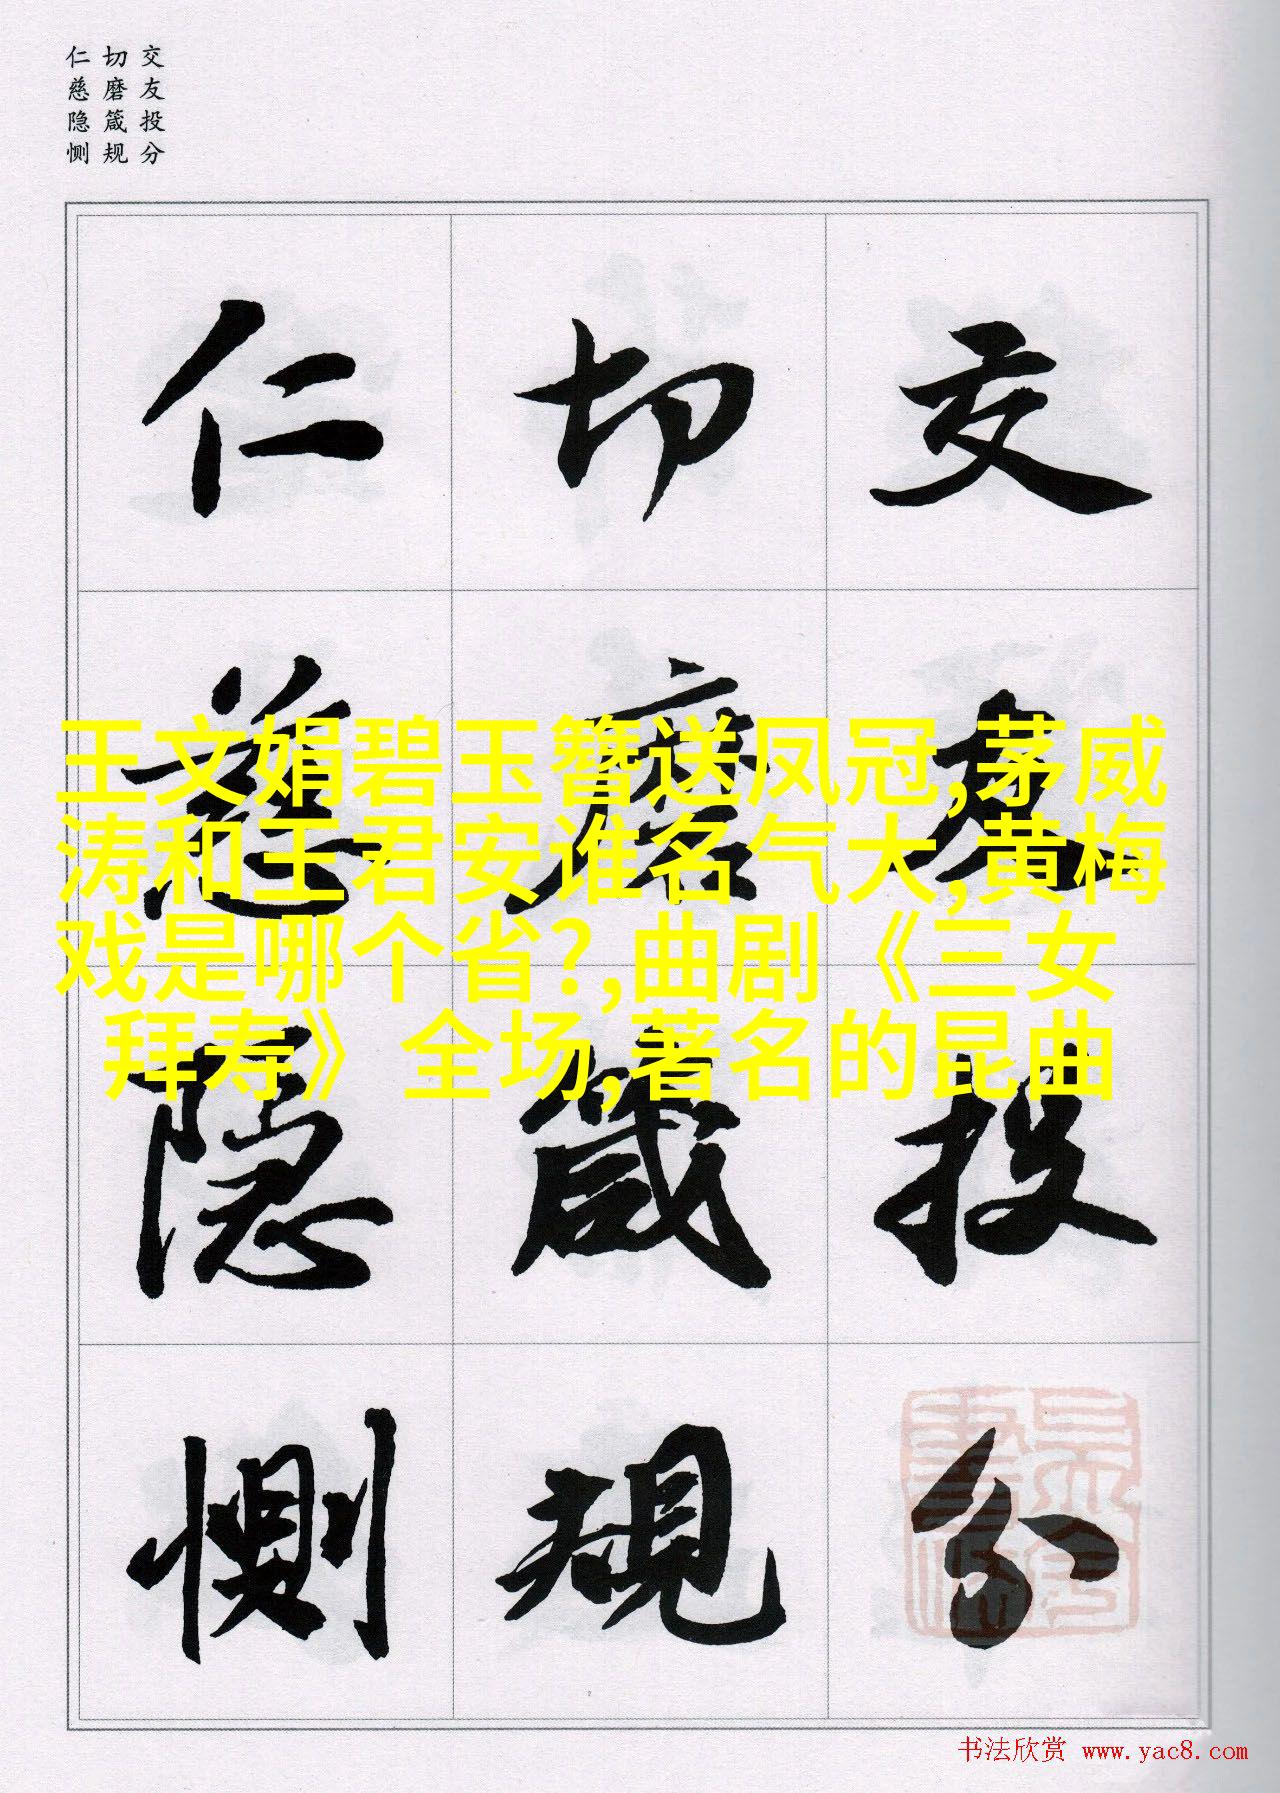 交友投分
切磨箴规
仁慈隐恻
交友投分
切磨箴规
仁慈隐恻
王文娟碧玉簪送凤冠,茅威
涛和王君安谁名气大,黄梅
戏是哪个省?,曲剧《三女
拜寿》全场,著名的昆曲
书法欣赏 www.yac8.com